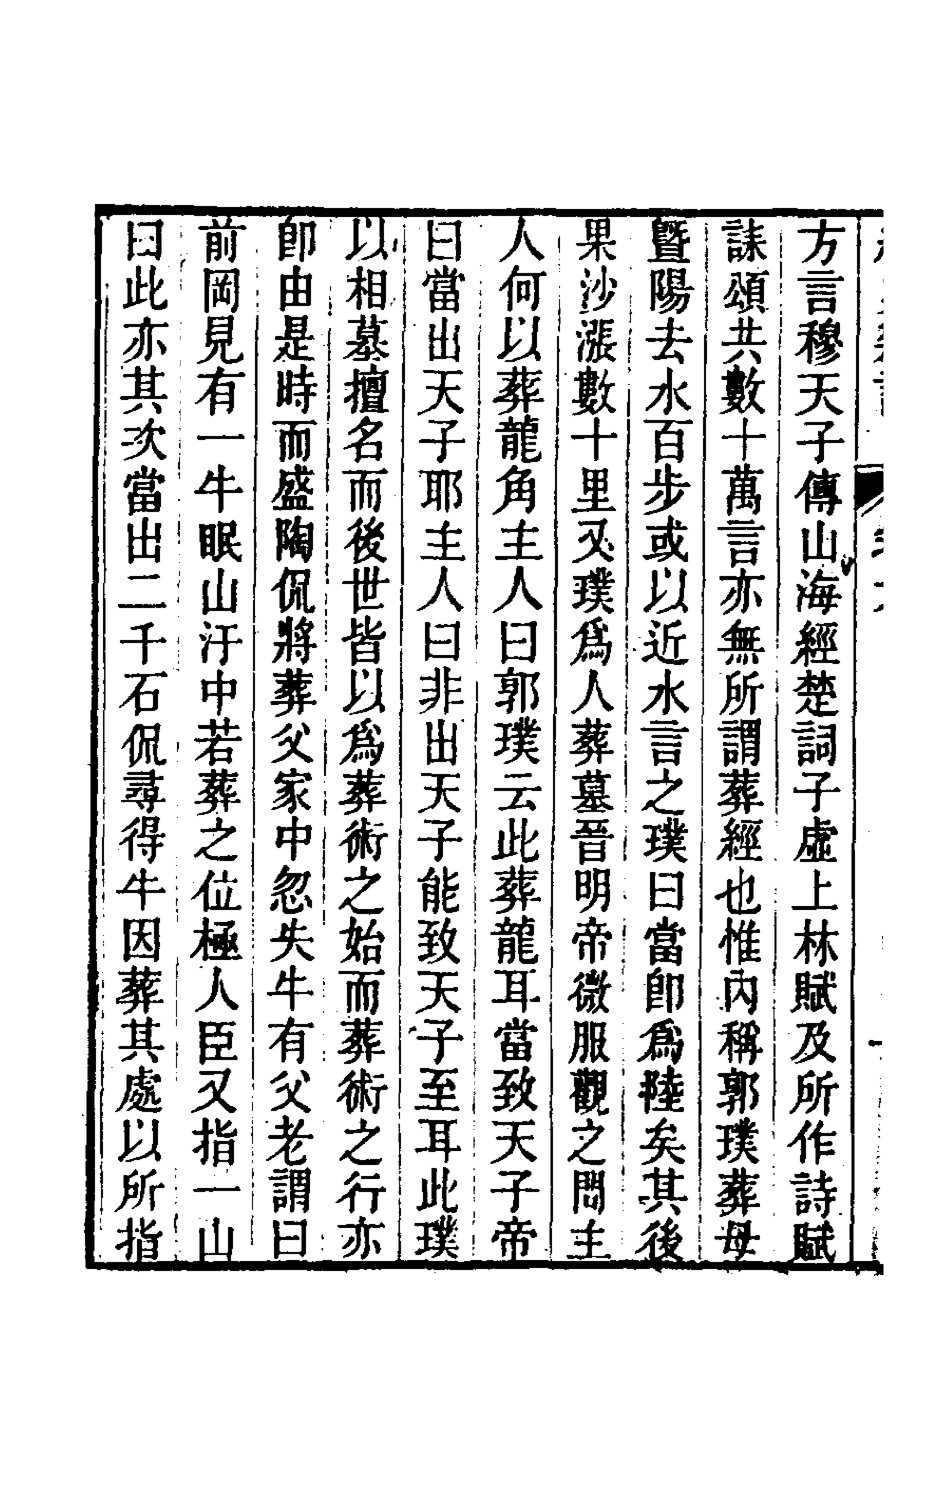 方言穆天子傳山海經楚詞子虛上林賦及所作詩賦
誄頌共數十萬言亦無所謂葬經也惟內稱郭璞葬母
曁陽去水百步或以近水言之璞曰當卽爲陸矣其後
果沙漲數十里又璞爲人葬墓晉明帝微服觀之問主
人何以葬龍角主人曰郭璞云此葬龍耳當致天子帝
曰當出天子耶主人曰非出天子能致天子至耳此璞
以相墓擅名而後世皆以爲葬術之始而葬術之行亦
卽由是時而盛陶侃將葬父家中忽失牛有父老謂曰
前岡見有一牛眠山汙中若葬之位極人臣又指一山
曰此亦其次當出二千石侃尋得牛因葬其處以所指